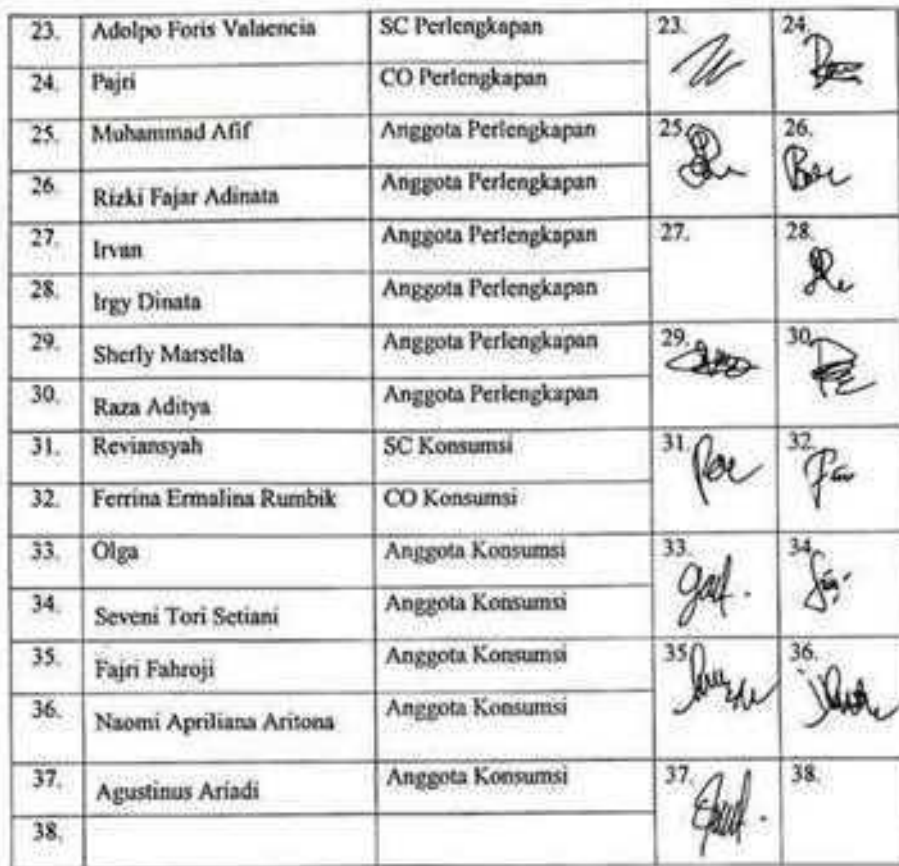 23. Adolpo Foris Valaencia SC Perlengkapan 23. 24.
24. Pajri CO Perlengkapan
25. Muhammad Afif Anggota Perlengkapan 25. 26.
26. Rizki Fajar Adinata Anggota Perlengkapan
27. Irvan Anggota Perlengkapan 27. 28.
28. Irgy Dinata Anggota Perlengkapan
29. Sherly Marsella Anggota Perlengkapan 29. 30.
30. Raza Aditya Anggota Perlengkapan
31. Reviansyah SC Konsumsi 31. 32.
32. Ferrina Ermalina Rumbik CO Konsumsi
33. Olga Anggota Konsumsi 33. 34.
34. Seveni Tori Setiani Anggota Konsumsi
35. Fajri Fahroji Anggota Konsumsi 35. 36.
36. Naomi Apriliana Aritona Anggota Konsumsi
37. Agustinus Ariadi Anggota Konsumsi 37. 38.
38.